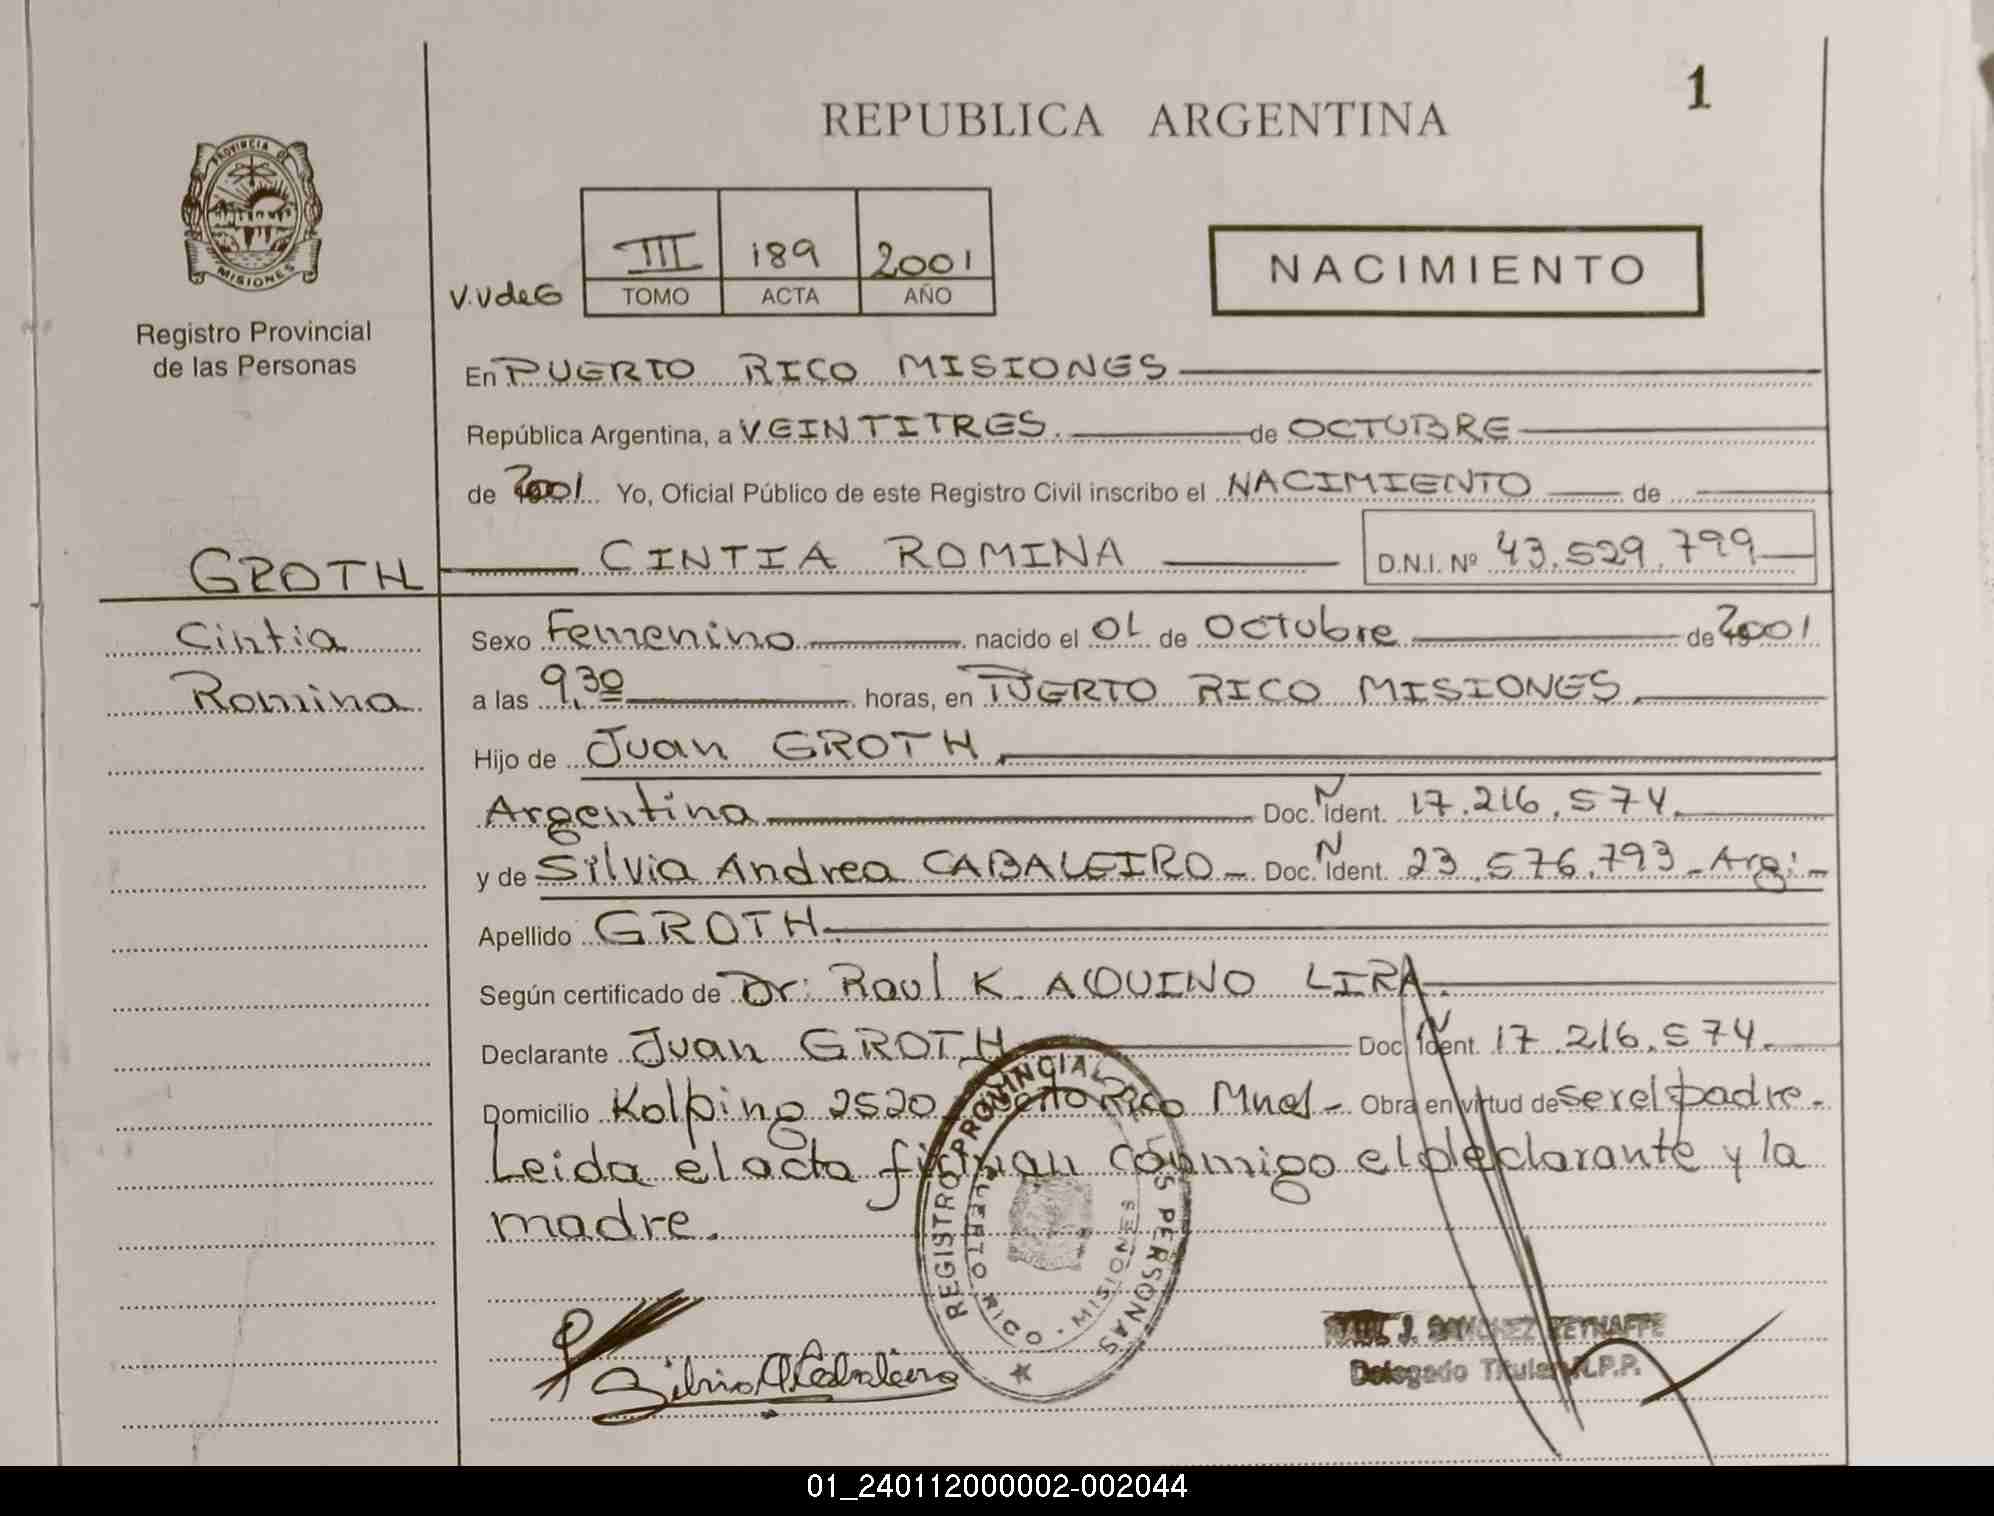 1
REPUBLICA ARGENTINA
PROVINCIA DE
MISIONES
Registro Provincial
de las Personas
V.VdeG
III 189 2001
TOMO ACTA AÑO
NACIMIENTO
En PUERTO RICO MISIONES
República Argentina, a VEINTITRES. de OCTUBRE
de 2001 Yo, Oficial Público de este Registro Civil inscribo el NACIMIENTO de
GROTH CINTIA ROMINA D.N.I. Nº 43.529.799
Cintia Sexo Femenino nacido el 01 de Octubre de 2001
Romina a las 9,30 horas, en PUERTO RICO MISIONES,
Hijo de Juan GROTH,
Argentina Doc. N Ident. 17.216.574.
y de Silvia Andrea CABALEIRO - Doc. N Ident. 23.576.793 - Arg: -
Apellido GROTH.
Según certificado de Dr: Raul K. AQUINO LIRA.
Declarante Juan GROTH Doc. N Ident. 17.216.574.
Domicilio Kolping 2520 Puerto Rico Mnes - Obra en virtud de ser el padre -
Leida el acta firman conmigo el declarante y la
madre.
REGISTRO PROVINCIAL DE LAS PERSONAS
PUERTO RICO - MISIONES
Silvia A Cabaleiro
J. SANCHEZ REYNAFFE
Delegado Titular R.P.P.
01_240112000002-002044